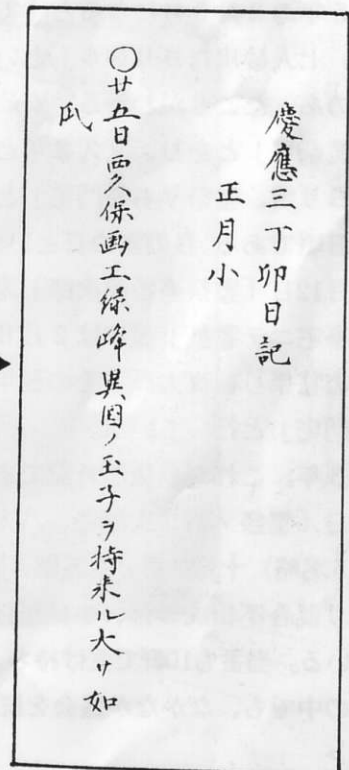 慶應三丁卯日記
正月小
〇廿五日西久保画工緑峰異国ノ玉子ヲ持来ル大サ如
瓜